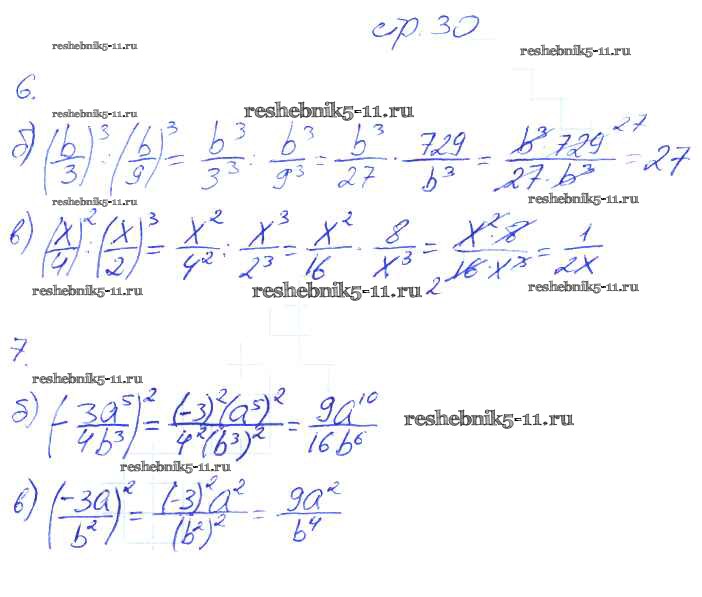 стр. 30
reshebnik5-11.ru reshebnik5-11.ru
6.
reshebnik5-11.ru reshebnik5-11.ru
б) (b/3)³ : (b/9)³ = b³/3³ : b³/9³ = b³/27 · 729/b³ = b³·729 27/27·b³ = 27
reshebnik5-11.ru
в) (x/4)² : (x/2)³ = x²/4² : x³/2³ = x²/16 · 8/x³ = x²·8/2 16·x³ = 1/2x
reshebnik5-11.ru reshebnik5-11.ru reshebnik5-11.ru
7.
reshebnik5-11.ru
б) (-3a⁵/4b³)² = (-3)²(a⁵)²/4²(b³)² = 9a¹⁰/16b⁶ reshebnik5-11.ru
reshebnik5-11.ru
в) (-3a/b²)² = (-3)²a²/(b²)² = 9a²/b⁴